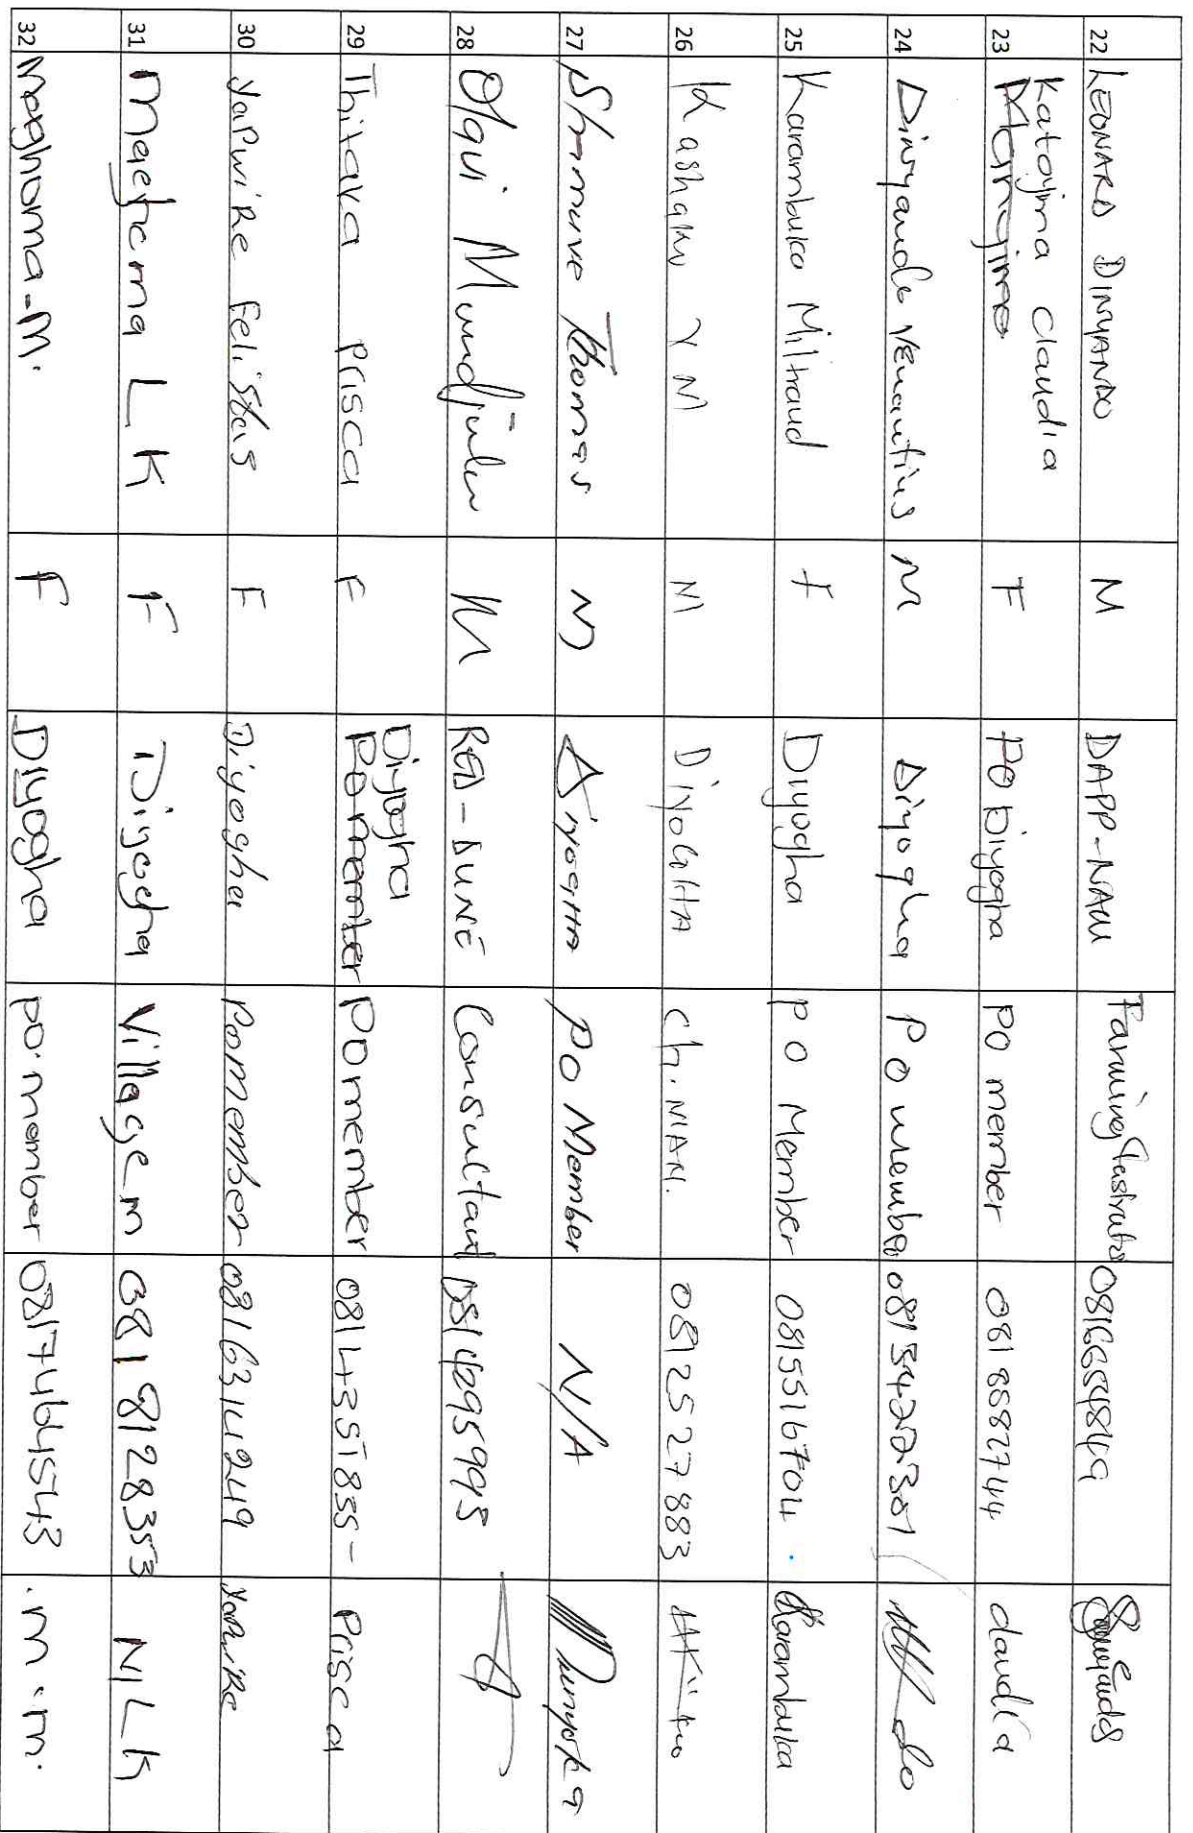 22 LEONARD DINYANDO M DAPP-NAU 0816654849
23 Katojima Claudia F PO Diyogha PO member 0818882744 claudia
24 Dinyando Venantius M Diyogha PO member 0813422381
25 Karambuka Miltraud F Diyogha PO Member 0815516704. Karambuka
26 Kashaku Y M M DiYOGHA CH.MAN. 0812527883
27 Shamuve Thomas M DiYOGHA PO Member N/A
28 Olavi M RED-DUNE Consultant 0814295995
29 Thitava Prisca F Diyogha PO member 0814351855- Prisca
30 Yapwire Felistas F Diyogha Pomember 0816314249 Yapwire
31 L K F Diyogha Village m 0818128353
32 Maghoma.M. F Diyogha po.member 0817464543 .m.m.